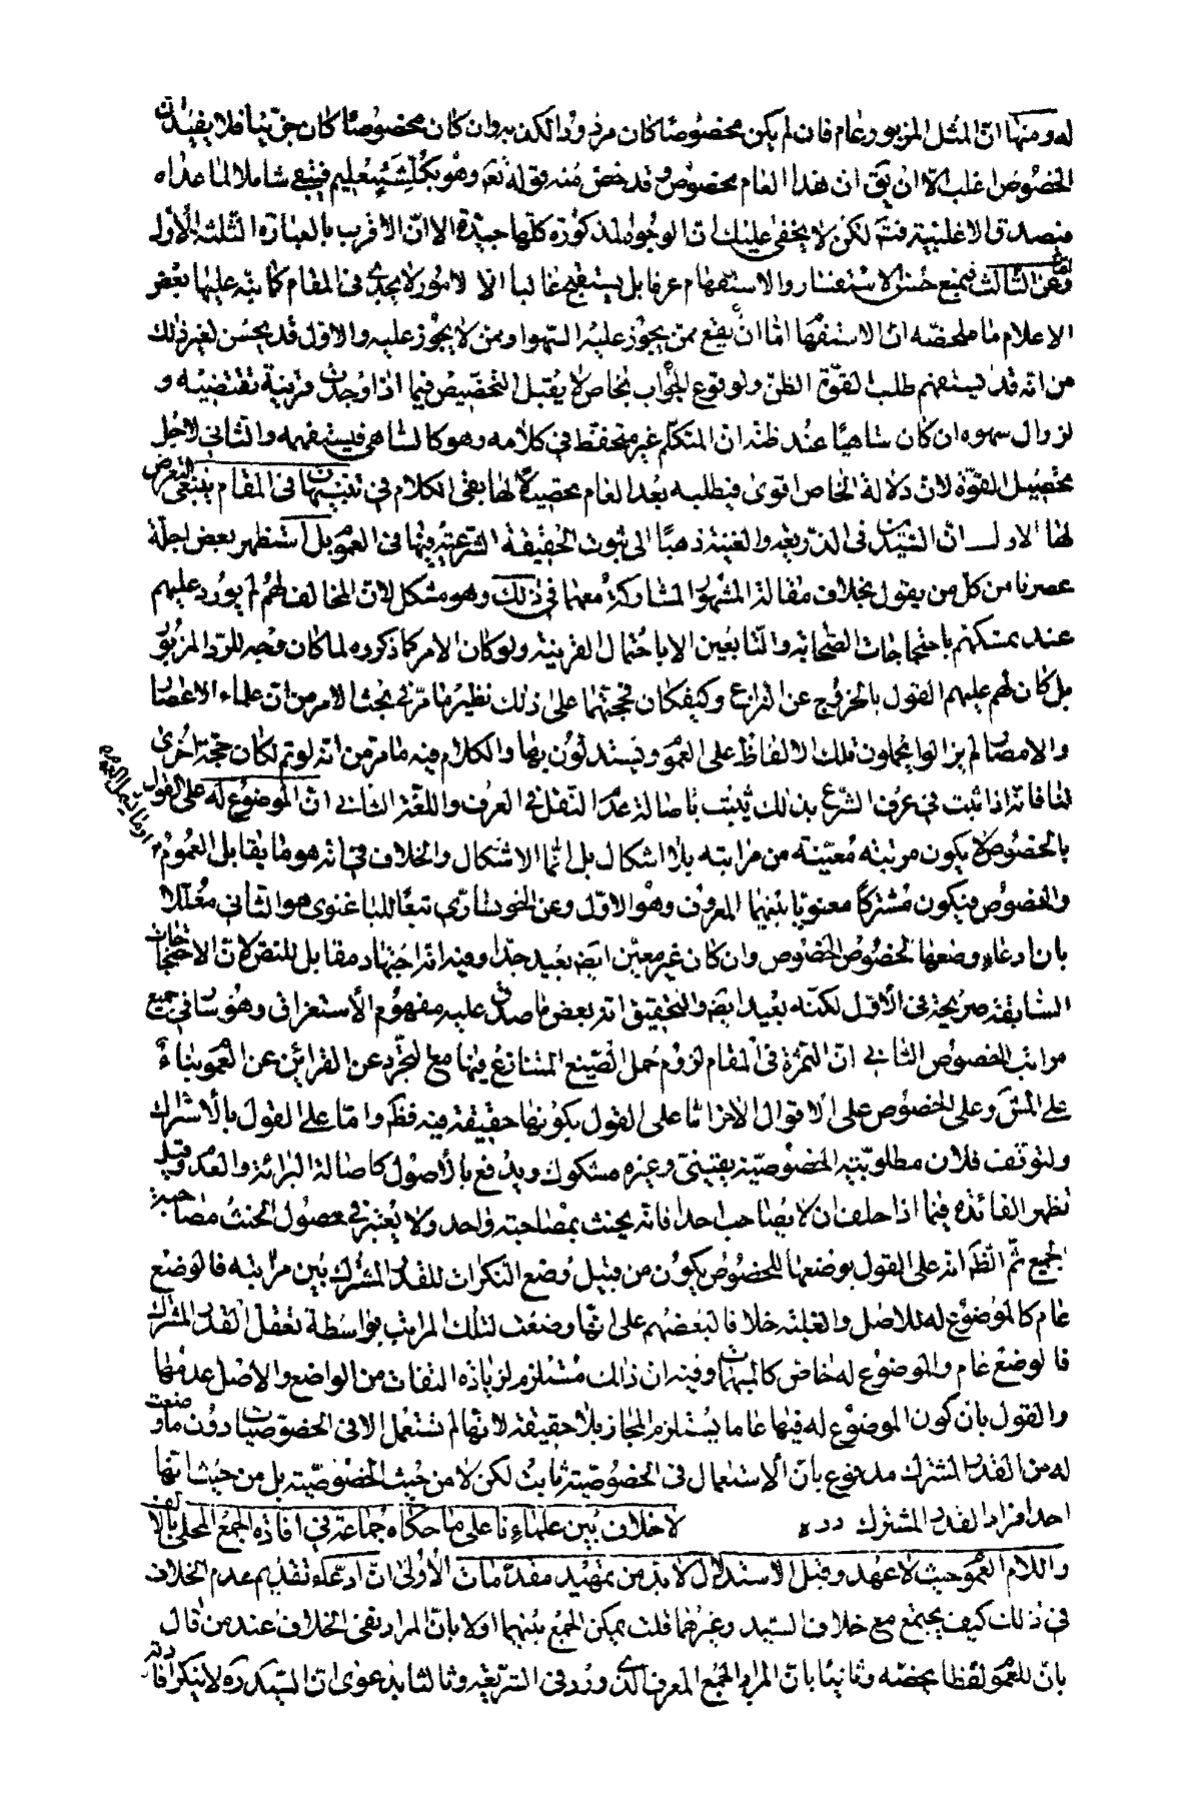 له ومنها انّ المثل المزبور عام فان لم يكن مخصوصًا كان مردودا لكذبه وان كان مخصوصًا كان جزئيا فلا يفيد ان
الخصوص اغلب الّا ان يق ان هذا العام مخصوص وقد خص منه قوله تعم وهو بكلّ شيئ عليم فبقى شاملا لما عداه
فيصدق الاغلبية فتم لكن لا يخفى عليك انّ الوجوه المذكورة كلّها جيّدة الا انّ الاقرب بالعبارة الثلثة الاول
وامّا عن الثالث فبمنع حسن الاستفسار والاستفهام عرفا بل يستقبح غالبا الا لامور لا يجدى فى المقام كما نبّه عليها بعض
الاعلام ما ملخصّه انّ الاستفهام امّا ان يقع ممّن يجوز عليه السّهو او ممن لا يجوز عليه والاول قد يحسن لغير ذلك
من انّه قد يستفهم طلب القوّة الظنّ ولوقوع الجواب بخاص لا يقبل التخصيص فيما اذا وجدت قرينة تقتضيه و
لزوال سهوه ان كان ساهيًا عند ظنّه انّ المتكلّم غير متحفّظ فى كلامه وهو كالساهى فيستفهمه والثانى لاجل
تحصيل القوّة لانّ دلالة الخاص اقوى فيطلبه بعد العام تحصيلًا لها بقى الكلام فى تنبيهات فى المقام ينبغى التعرض
لها الاول انّ السّيدين فى الذّريعة والغنية ذهبًا الى ثبوت الحقيقة الشّرعيّة فيها فى العموم بل استظهر بعض اجلّة
عصرنا من كل من يقول بخلاف مقالة المشهور المشاركة معهما فى ذلك وهو مشكل لانّ المخالف لهم لم يورد عليهم
عند تمسّكهم باحتجاجات الصّحابة والتّابعين الا باحتمال القرينة ولو كان الامر كما ذكروه لما كان وجه للردّ المزبور
بل كان لهم عليهم القول بالخروج عن النزاع وكيف كان فحجّتهما على ذلك نظير ما مرّ فى بحث الامر من انّ علماء الاعصار
والامصار لم يزالوا يحملون تلك الالفاظ على العموم ويستدلّون بها والكلام فيه ما مرّ من انّه لو تم لكان حجّة اخرى
لنا فانّه اذا ثبت فى عرف الشّرع بذلك يثبت باصالة عدم النقل فى العرف واللغة الثانى انّ الموضوع له على القول
بالخصوص لا يكون مرتبة معيّنة من مراتبه بلا اشكال بل انّما الاشكال والخلاف فى انّه هو ما يقابل العموم
والخصوص فيكون مشتركًا معنويا بينهما المعروف وهو الاوّل وعن الخونسارى تبعًا للباغنوى هو الثانى معلّلا
بان ادعاء وضعها لخصوص الخصوص وان كان غير معيّن ايضا بعيد جدّا وفيه انّه اجتهاد مقابل للنص لانّ الاحتجاجات
السّابقة صريحة فى الاوّل لكنّه بعيد ايضا والتحقيق انّه بعض ما صدق عليه مفهوم الاستغراق وهو سار فى جميع
مراتب الخصوص الثانى انّ الثمرة فى المقام لزوم حمل الصّيغ المتنازع فيها مع التجّرد عن القرائن عن العموم بناءً
على المش وعلى الخصوص على الاقوال الاخر امّا على القول بكونها حقيقة فيه فظهر وامّا على القول بالاشتراك
والتوقف فلانّ مطلوبيّة الخصوصيّة يقينىّ وغيره مشكوك ويدفع بالاصول كاصالة البرائة والعدم وقيل
تظهر الفائدة فيما اذا حلف ان لا يصاحب احدا فانّه يحنث بمصاحبة واحد ولا يعتبر فى حصول الحنث مصاحبة
الجميع ثمّ الظّ انّه على القول بوضعها للخصوص يكون من قبيل وضع النكرات للقدر المشترك بين مراتبه فالوضع
عام كالموضوع له للاصل والغلبة خلافا لبعضهم على انّها وضعت لتلك المراتب بواسطة تعقّل القدر المشترك
فالوضع عام والموضوع له خاص كالمبهمات وفيه ان ذلك مستلزم لزيادة التفات من الواضع والاصل عدمها
والقول بان كون الموضوع له فيها عاما يستلزم المجاز بلا حقيقة لانّها لم تستعمل الا فى الخصوصيّات دون ما وضعت
له من القدر المشترك مدفوع بانّ الاستعمال فى الخصوصيّة ثابت لكن لا من حيث الخصوصيّة بل من حيث انها
احد افراد القدر المشترك درة لا خلاف بين علمائنا على ما حكاه جماعة فى افادة الجمع المحلى بالالف
واللام العموم حيث لا عهد وقبل الاستدلال لا بدّ من تمهيد مقدّمات الاولى انّ ادعاء تقديم عدم الخلاف
فى ذلك كيف يجتمع مع خلاف السّيد وغيرهما قلت يمكن الجمع بينهما اولا بانّ المراد نفى الخلاف عند من قال
بانّ للعموم لفظا يخصّه وثانيًا بانّ المراد الجمع المعرف الّذى ورد فى الشّريعة وثالثا بدعوى انّ السّيد ره لا ينكر افادته